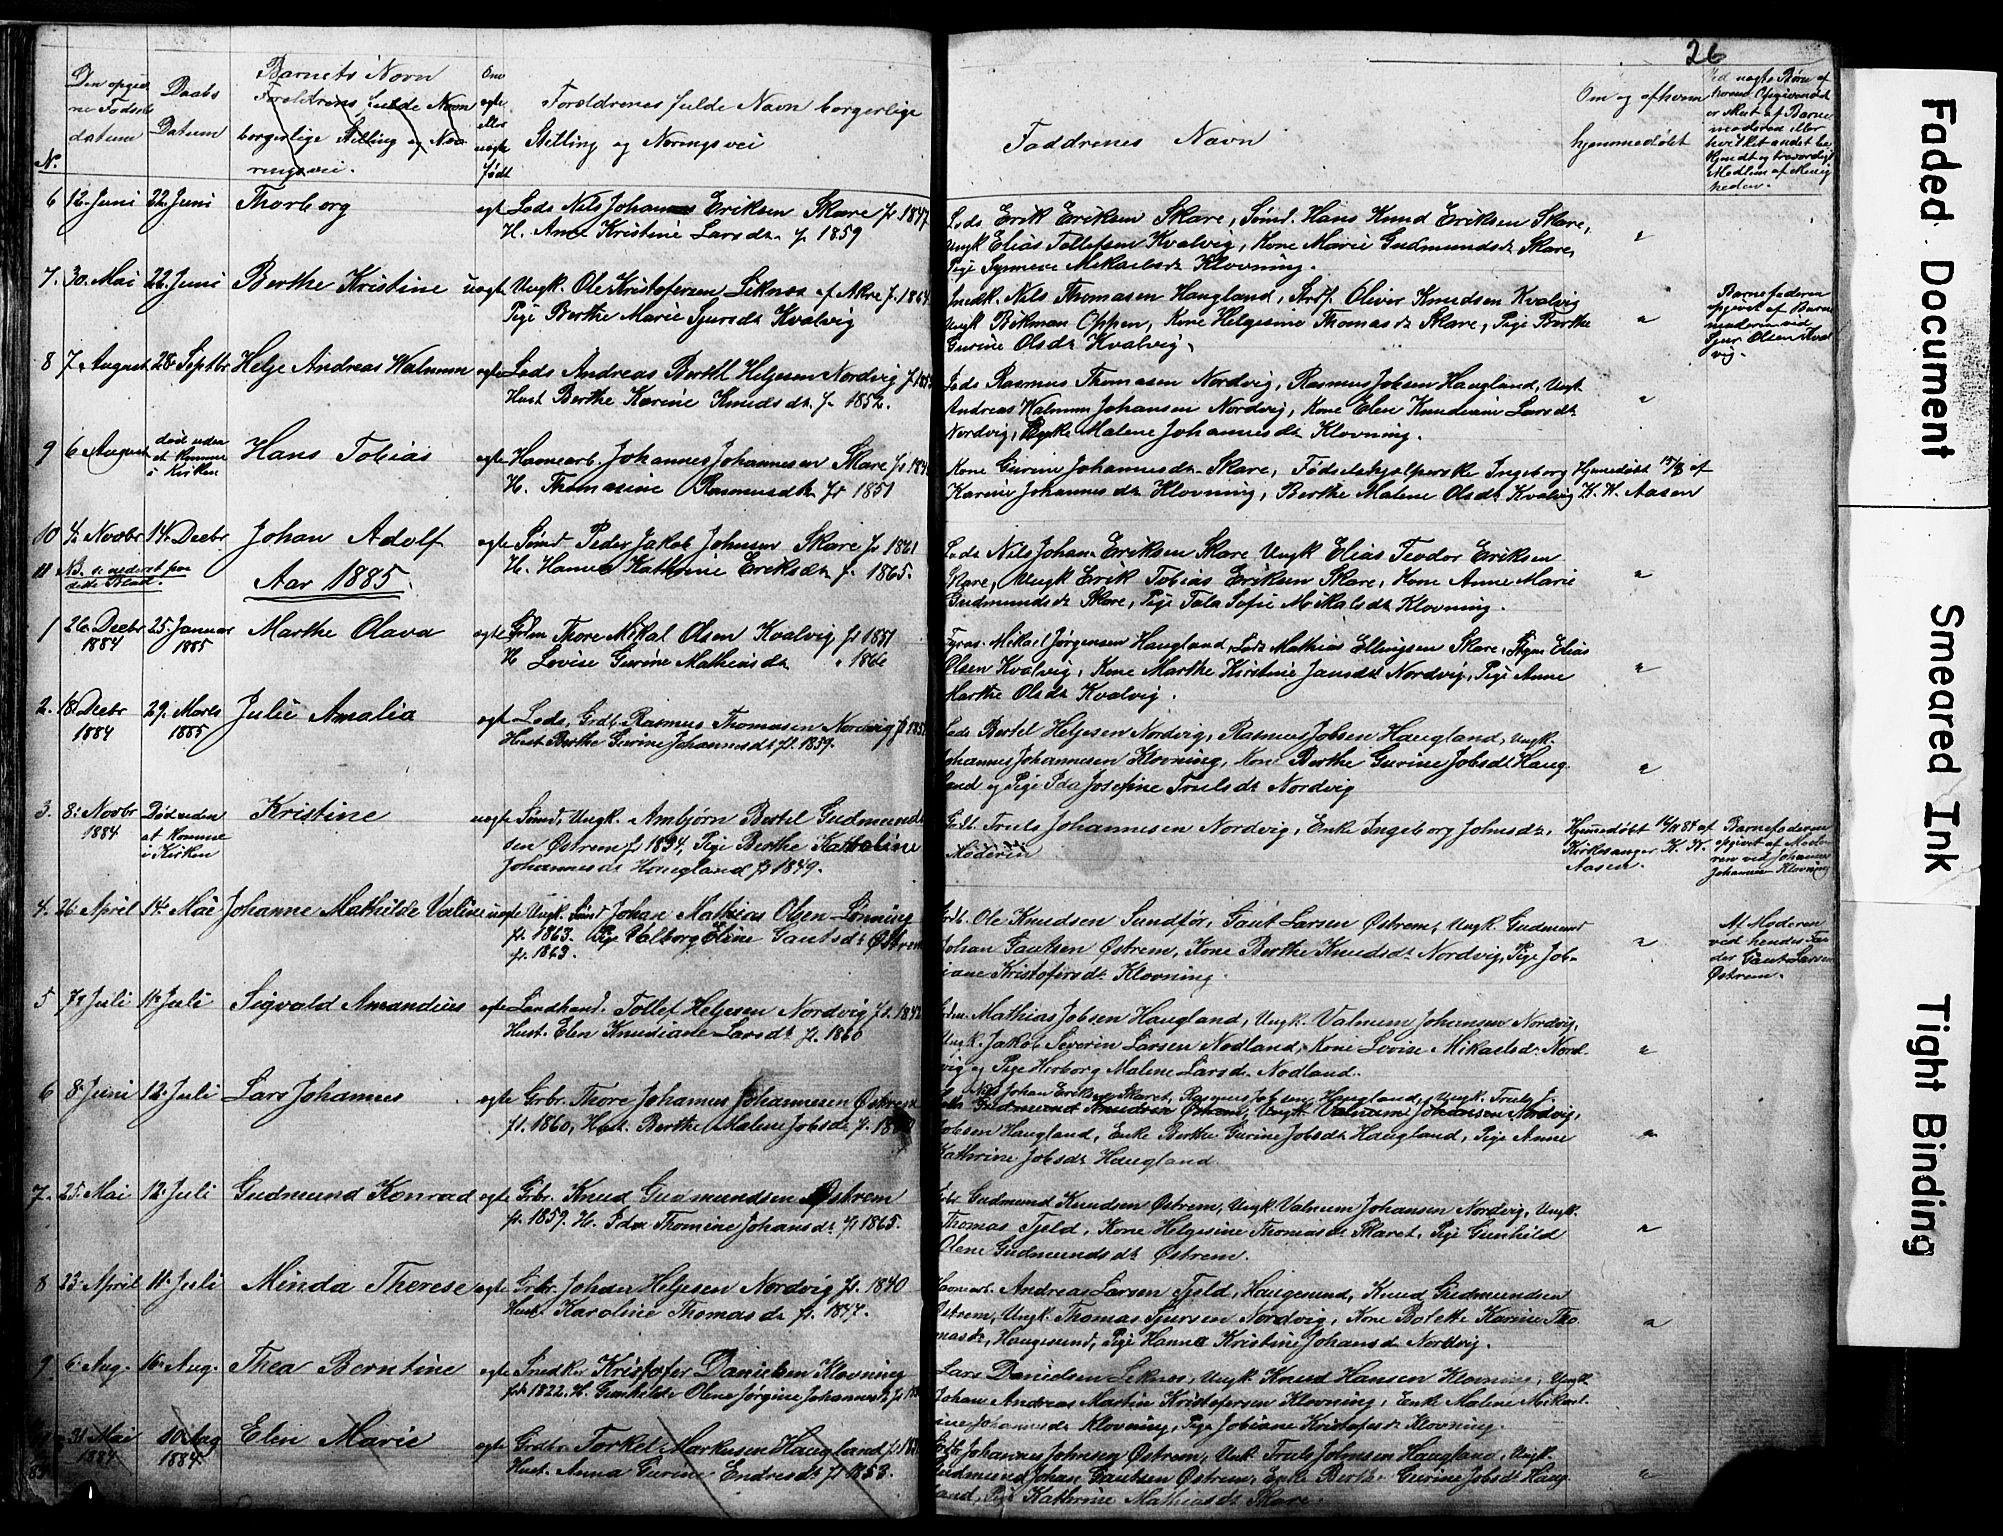 26
N.
Den opgiv
ne Fødsels
datum
Daabs
Datum
Barnets Navn
Forældrenes fulde Navn
borgerlige Stilling og Næ
ringsvei.
Om
ægte
eller
uægte
født
Forældrenes fulde Navn borgerlige
Stilling og Næringsvei
Faddrenes Navn
Om og af hvem
hjemmedøbt
Ved uægte Børn af
hvem Opgivende
er skeet af Barne
moderen eller
hvilket andet be
kjendt og troværdigt
Medlem af Menig
heden.
6 12. Juni 22. Juni Thorborg ægt Lods Nils Johannes Eriksen Skare f. 1847
H. Anne Kristine Larsdt. f. 1859
Lods Erik Eriksen Skare, Sømd. Hans Knud Eriksen Skare,
Ungk Elias Tollefsen Kvalvig, Kone Marie Gudmundsdt Skare,
Pige Synneve Mikaelsdt Klovning.
7. 30. Mai 22. Juni Berthe Kristine uægte Ungk. Ole Kristofersen Liknæs af Akre f. 1864
Pige Berthe Marie Sjursdt Kvalvig
Snedk. Nils Thomasen Haugland, Strdf. Oliver Knudsen Kvalvig
Ungk Bikman Oppen, Kone Helgesine Thomasdt Skare, Pige Berthe
Gurine Olsdt Kvalvig.
Barnefaderen
opgivet af Barne
moderen ved
Sjur Olsen Kval
vig.
8 7. August 28. Septbr Helje Andreas Walnum ægte Lods Andreas Bertil Heljesen Nordvig f. 185
Hust Berthe Karine Knudsdt. f. 1852.
Lods Rasmus Thomasen Nordvig, Rasmus Jobsen Haugland, Ungk.
Andreas Walnum Johansen Nordvig, Kone Elen Knudiane Larsdt
Nordvig, Pige Malene Johannesdt Klovning.
9 6 August død uden
at komme
i Kirken
Hans Tobias ægte Havnearb. Johannes Johannesen Skare f. 184
H. Thomasine Rasmusdt. fr 1851
Kone Gurine Johannesdt. Skare, Fødselshjelperske Ingeborg
Karine Johannesdt Klovning, Berthe Malene Olsdt Kvalvig
Hjemedøbt 15/8 af
K. K. Aasen
10 4. Novbr 14. Decbr Johan Adolf ægte Sømd Peder Jakob Johnsen Skare f. 1861
H. Hanne Kathrine Eriksdt f. 1865.
Lods Nils Johan Eriksen Skare Ungk Elias Teodor Eriksen
Skare, Ungk Erik Tobias Eriksen Skare, Kone Anne Marie
Gudmundsdt Skare, Pige Tala Sofie Mikalsdt Klovning.
11 NB. s. nederst paa
dette Blad.
Aar 1885.
1 26. Decbr
1884
25. Januar
1885
Marthe Olava ægte Thore Mikal Olsen Kvalvig f. 1851
H Lovise Gurine Mathiasdt. " 1860
Fyras. Mikael Jørgensen Haugland, Lods Mathias Ellingsen Skare, Elias
Olsen Kvalvig, Kone Marthe Kirstine Jansdt Nordvig, Pige Anne
Marthe Olsdt Kvalvig.
2. 18. Decbr
1884
29. Marts
1885
Julie Amalia ægt Lods, Grdb. Rasmus Thomasen Nordvig f. 185
Hust Berthe Gurine Johannesdt f. 1859.
Lods Bertel Heljesen Nordvig, Rasmus Jobsen Haugland, Ungk.
Johannes Johannesen Klovning, Kone Berthe Gurine Jobsdt Haug
land og Pige Ida Josefine Trulsdt Nordvig
3. 8. Novbr
1884
Død uden
at komme
i Kirken
Kristine uægte Sømd. Ungk. Ambjørn Bertel Gudmund
sen Østrem f. 1834, Pige Berthe Katholine
Johannesdt Haugland f. 1849.
Grdb. Truls Johannesen Nordvig, Enke Ingeborg Johnsdt.
Moderen
Hjemmedøbt af
Kirkesanger K. K.
Aasen.
Barnefaderen
opgivet af Mode
ren ved Johannes
Johannesen Klovning
4. 26. April 14. Mai Johanne Mathilde Valine uægte Ungk. Sømd Johan Mathias Olsen Lønning
f. 1863. Pige Valborg Eline Gautsdt Østrem
f. 1863.
Grdb. Ole Knudsen Sundfør, Gaut Larsen Østrem, Ungk. Gudmund
Johan Gautsen Østrem, Kone Berthe Knudsdt Nordvig, Pige Job-
iane Kristofersdt Klovning.
Af Moderen
ved hendes Fa
der Gaut Larsen
Østrem.
5 7. Juli 11. Juli Sigvald Amandius ægte Landhand. Tollef Heljesen Nordvig f. 1842
Hust. Elen Knudiane Larsdt f. 1860
Mathias Jobsen Haugland, Ungk. Valnum Johansen Nordvig,
Ungk. Jakob Severin Larsen Nodland, Kone Lovise Mikaelsdt. Nord-
vig og Pige Herborg Malene Larsdt. Nodland.
6 8. Juni 12. Juli Lars Johannes ægte Grbr. Thore Johannes Johannesen Østrem
f. 1860, Hust. Berthe Malene Jobsdt f. 18
Nils Johan Eriksen Skaret, Rasmus Jobsen Haugland, Ungk. Truls J.
Gudmund Knudsen Østrem, Ungk Valnum Johansen Nordvig,
Jobsen Haugland, Enke Berthe Gurine Jobsdt Haugland, Pige Anne
Kathrine Jobsdt Haugland.
7. 25. Mai 12. Juli Gudmund Konrad ægte Grbr. Knud Gudmundsen Østrem
f. 1859. H. Ida Thomine Johansdt. f. 1865.
Grbr Gudmund Knudsen Østrem, Ungk Valnum Johansen Nordvig, Ungk.
Thomas Tjeld, Kone Helgesine Thomasdt Skaret, Pige Gunhild
Olene Gudmundsdt Østrem.
8 23. April 11. Juli Minda Therese ægte Grbr. Johan Heljesen Nordvig f. 1840
Hust. Karoline Thomasdt f. 1847.
Havnearb. Andreas Larsen Tjeld, Haugesund, Knud Gudmundsen
Østrem, Ungk. Thomas Sjursen Nordvig, Kone Bolette Karine Tho
masdt, Haugesund, Pige Hanna Kristine Johansdt Nordvig.
9 6. Aug. 16. Aug. Thea Berntine ægte Snedker Kristofer Danielsen Klovning
f. 1822. H. Gunhilde Olene Jørgine Johannesdt f. 18
Lars Danielsen Liknes, Ungk. Knud Hansen Klovning, Ungk.
Johan Andreas Martin Kristofersen Klovning, Enke Malene Mikael
sine Johannesdt Klovning, Pige Jobiane Kristofersdt Klovning.
31. Mai
1884
10 Aug
1884
Elen Marie ægte Grdbr. Torkel Markusen Haugland f. 185
Hust. Anna Gurine Endresdt f. 1853.
Grdb Johannes Johnsen Østrem, Unk. Truls Johnsen Haugland, Ungk.
Gudmund Johan Gautsen Østrem, Enke Berthe Gurine Jobsdt Haug
land, Pige Kathrine Mathiasdt Skare.
Faded Document
Smeared Ink
Tight Binding